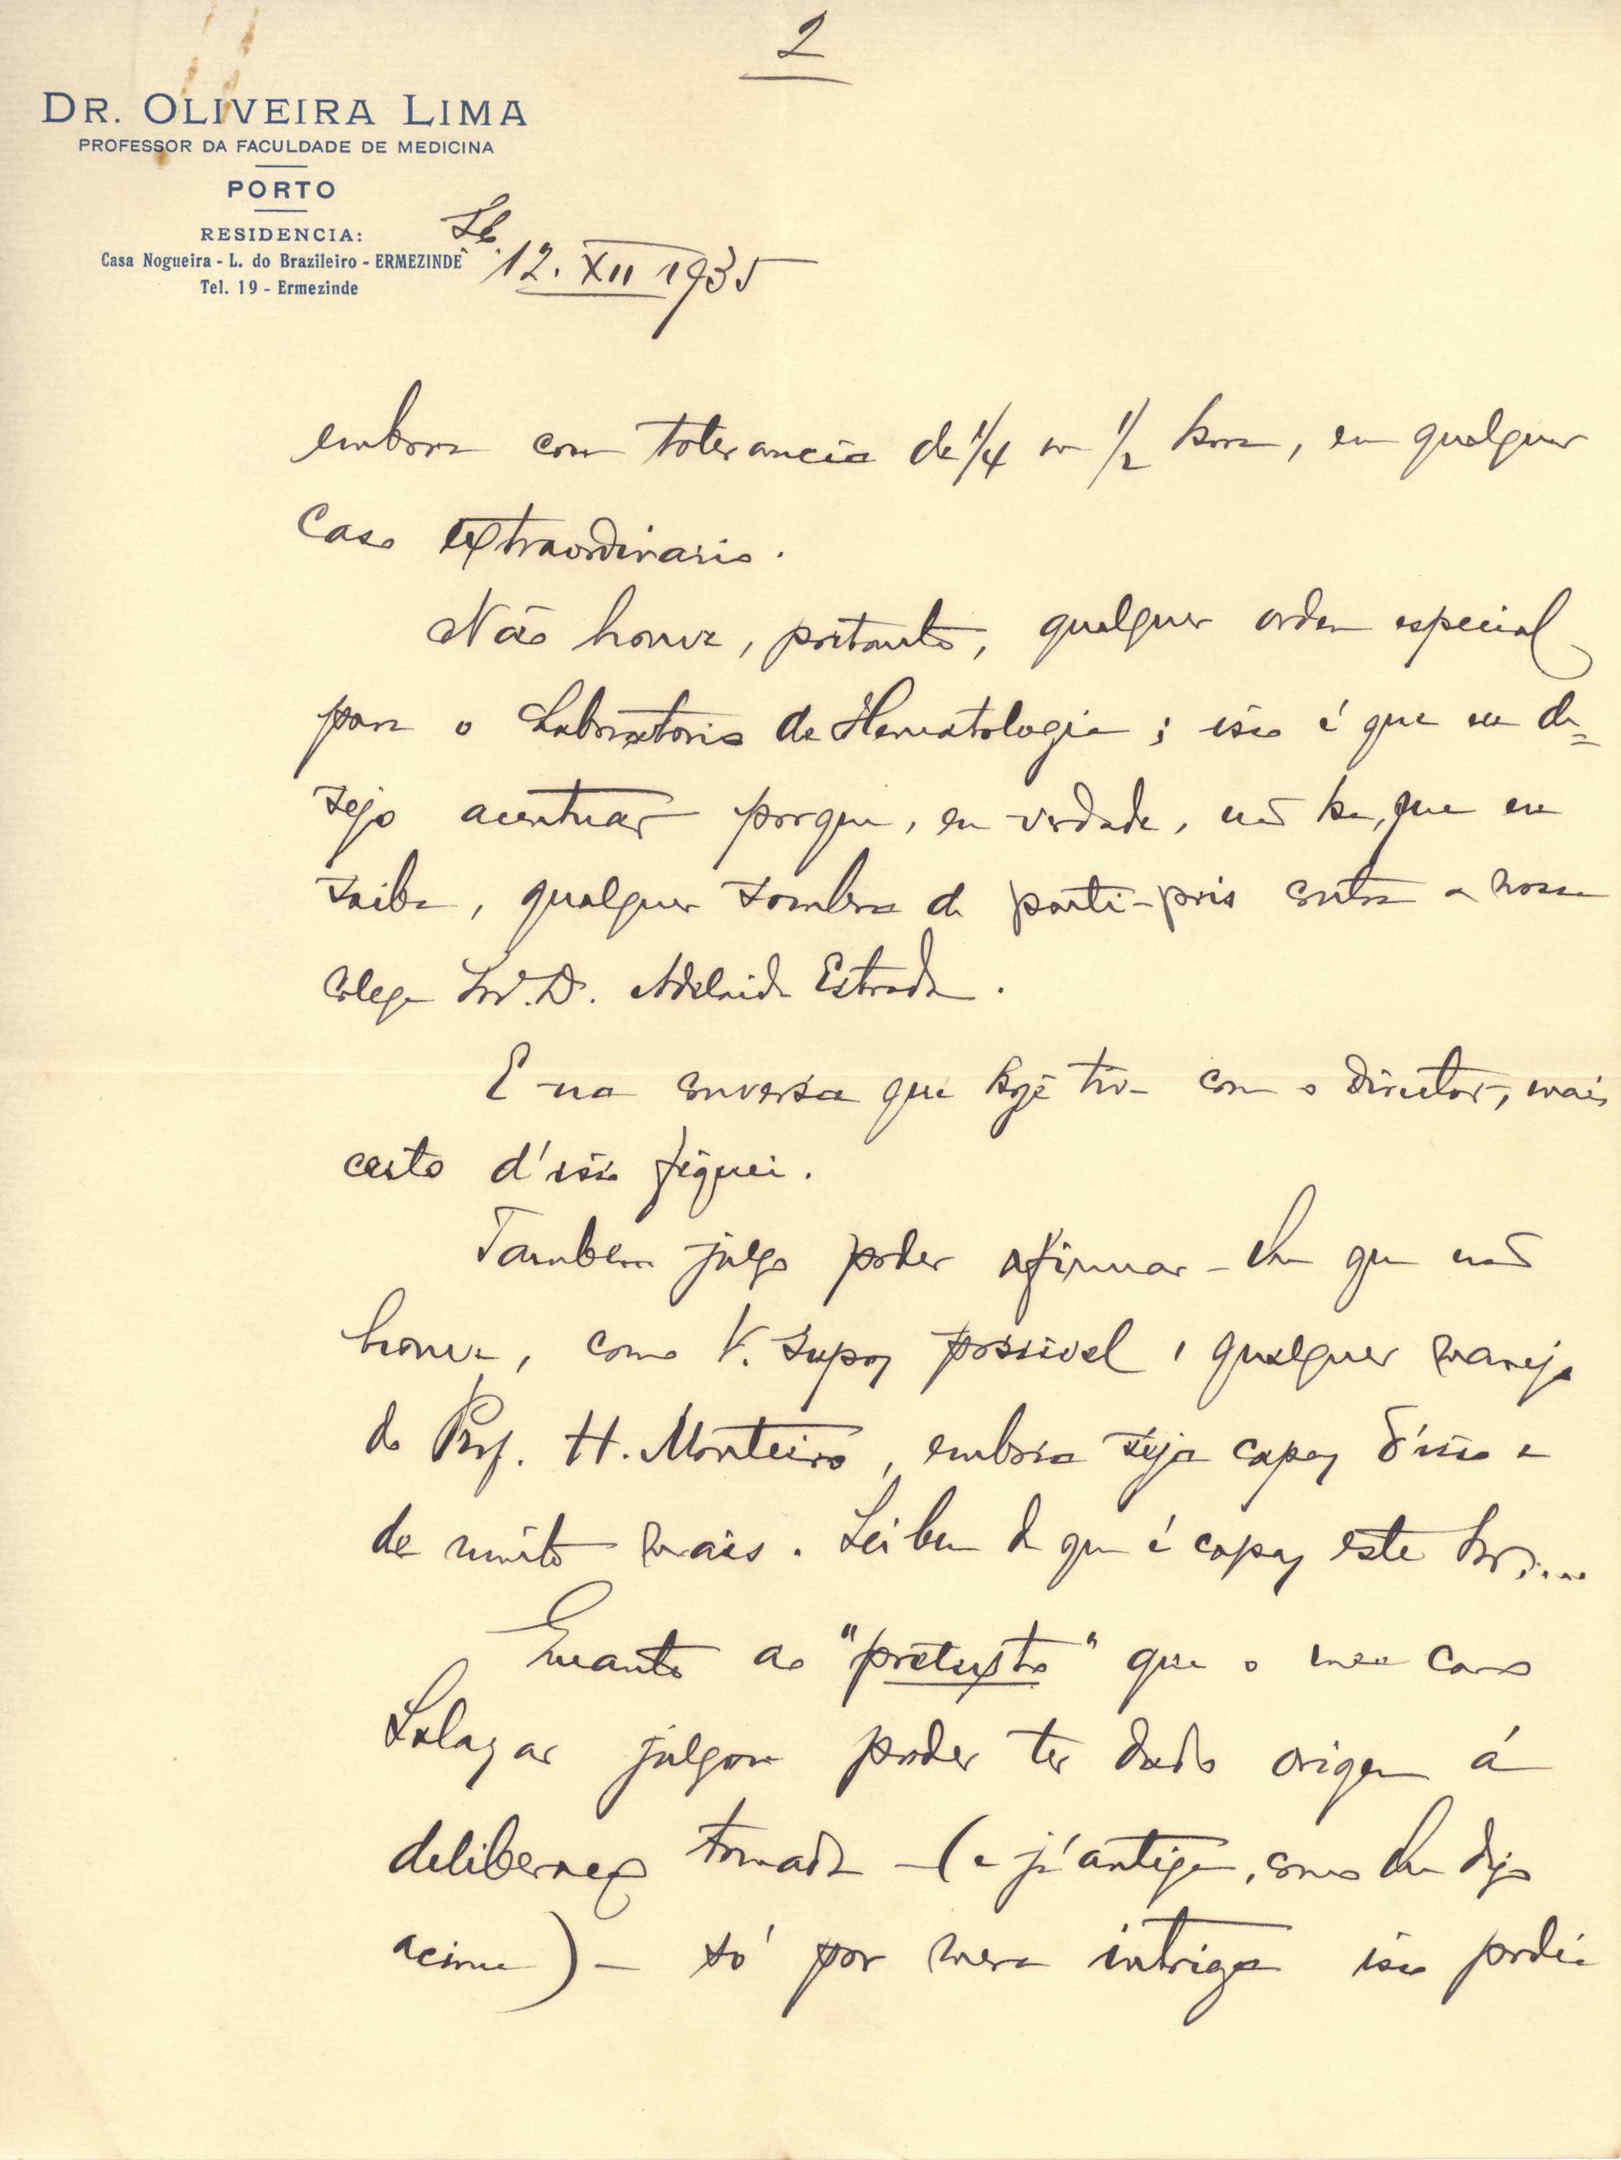 2
DR. OLIVEIRA LIMA
PROFESSOR DA FACULDADE DE MEDICINA
PORTO
RESIDENCIA:
Casa Nogueira - L. do Brazileiro - ERMEZINDE
Tel. 19 - Ermezinde
12. XII 1935
embora com tolerancia de 1/4 ou 1/2 hora, em qualquer
caso extraordinario.
Não houve, portanto, qualquer ordem especial
para o Laboratorio de Hematologia; isso é que eu de=
sejo acentuar porque, em verdade, não ha, que eu
saiba, qualquer sombra de parti-pris contra a nossa
colega Snrª. D. Adelaide Estrada.
E na conversa que hoje tive com o director, mais
certo d'isso fiquei.
Tambem julgo poder afirmar-lhe que não
houve, como V. supoz possivel, qualquer manejo
do Prof. H. Monteiro, embora seja capaz d'isso e
de muito mais. Sei bem de que é capaz este Snr....
Quanto ao "pretexto" que o meu caro
Salazar julgou poder ter dado origem á
deliberação tomada - (e já antiga, como lhe digo
acima) - só por mera intriga isso podia